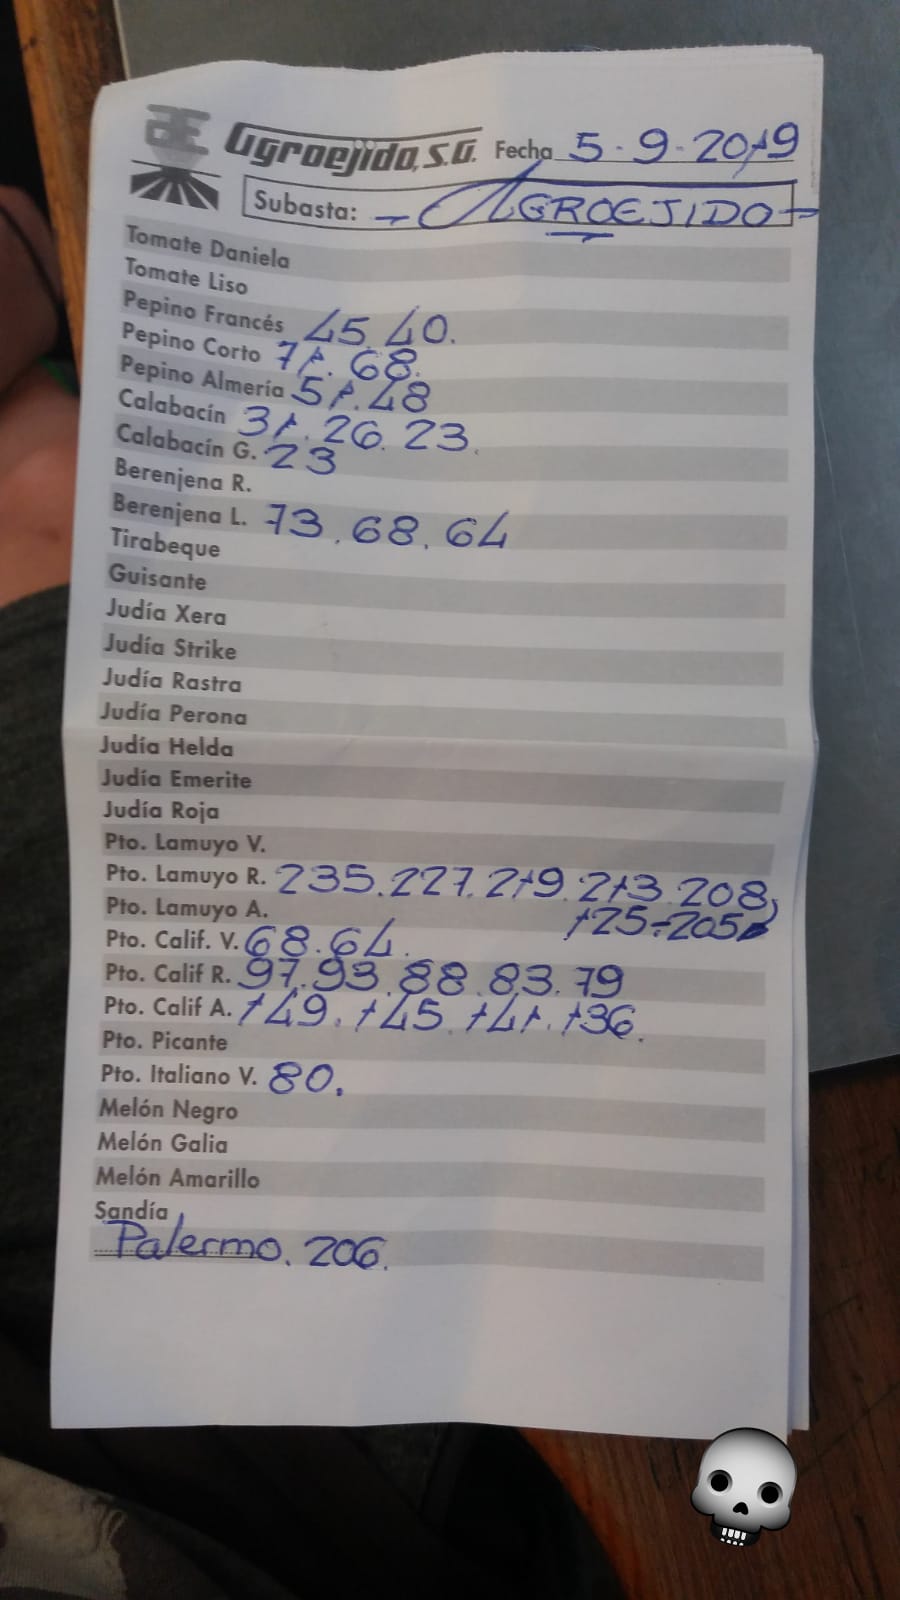 Agroejido, S.A. Fecha 5-9-2019
Subasta: - AGROEJIDO -
Tomate Daniela
Tomate Liso
Pepino Francés 45. 40.
Pepino Corto 71. 68.
Pepino Almería 51. 48
Calabacín 31. 26. 23.
Calabacín G. 23
Berenjena R.
Berenjena L. 73. 68. 64
Tirabeque
Guisante
Judía Xera
Judía Strike
Judía Rastra
Judía Perona
Judía Helda
Judía Emerite
Judía Roja
Pto. Lamuyo V.
Pto. Lamuyo R. 235. 227. 219. 213. 208,
Pto. Lamuyo A. 125-205
Pto. Calif. V. 68. 64.
Pto. Calif R. 97. 93. 88. 83. 79
Pto. Calif A. 149. 145. 141. 136.
Pto. Picante
Pto. Italiano V. 80.
Melón Negro
Melón Galia
Melón Amarillo
Sandía
Palermo. 206.